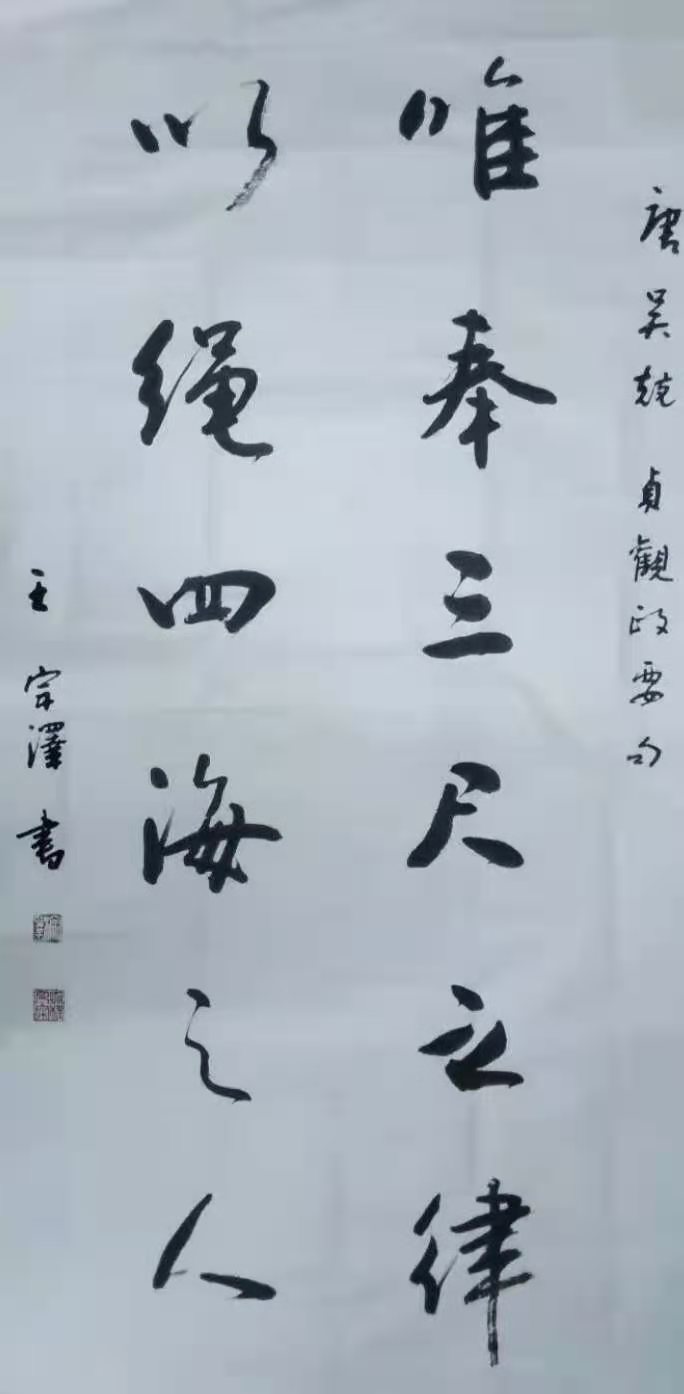 唐吴兢 贞觀政要句
唯奉三尺之律
以绳四海之人
王宗泽书